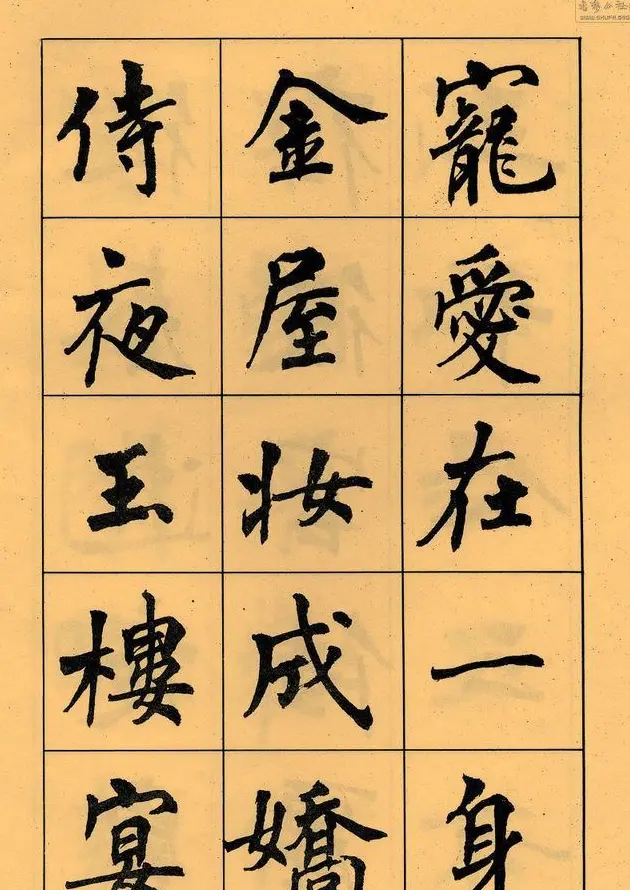 寵愛在一身
金屋妝成嬌
侍夜玉樓宴